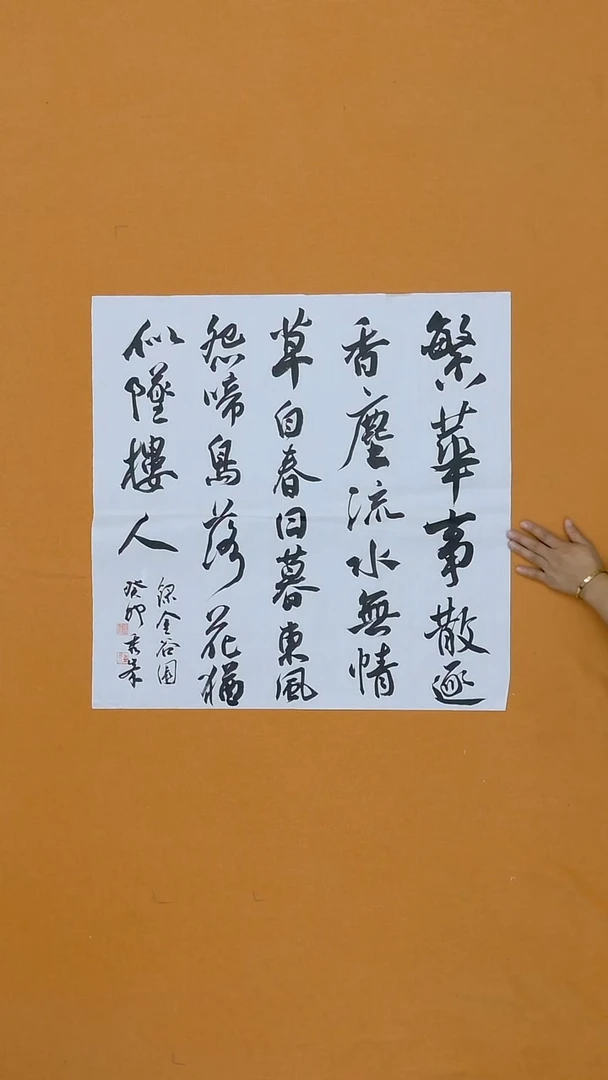 繁華事散逐
香塵流水無情
草自春日暮東風
怨啼鳥落花猶
似墜樓人
金谷園
癸卯